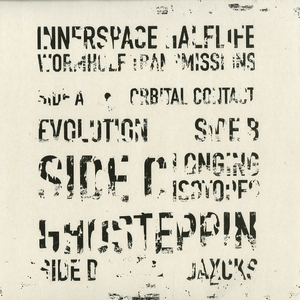 INNERSPACE HALFLIFE
WORMHOLE TRANSMISSIONS
SIDE A ORBITAL CONTACT
EVOLUTION SIDE B
SIDE C LONGING
ISOTOPES
GHOSTEPPIN
SIDE D